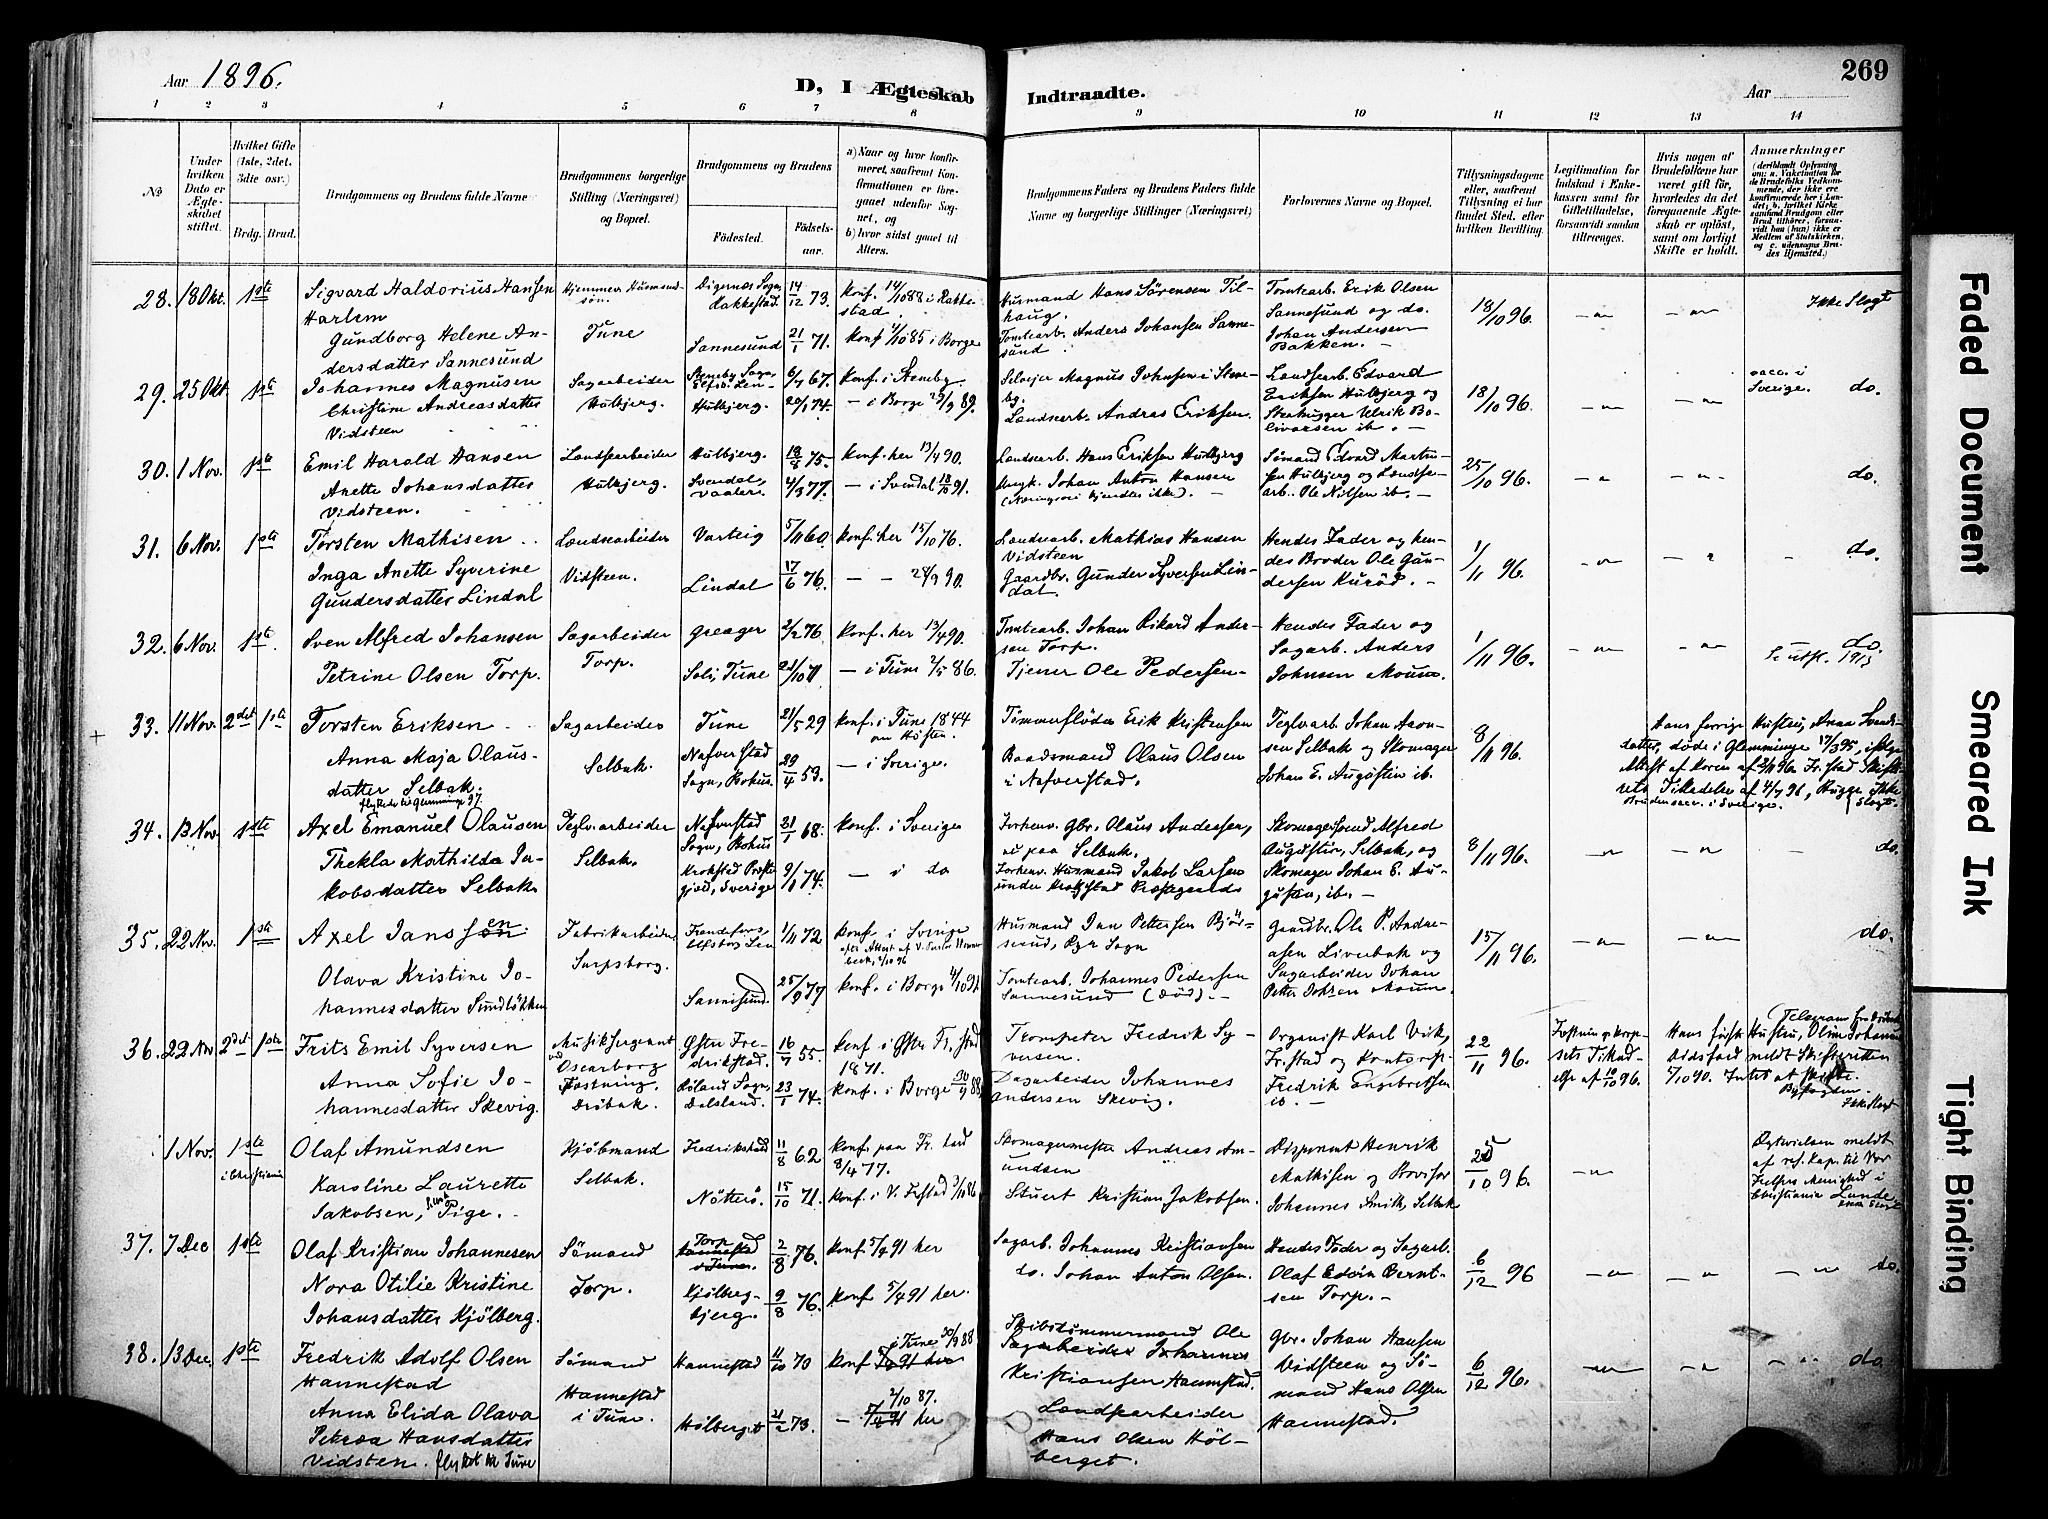 Aar 1896.
D, I Ægteskab Indtraadte.
Aar
269
1 2 3 4 5 6 7 8 9 10 11 12 13 14
No
Under hvilken Dato er Ægteskabet stiftet.
Hvilket Gifte (1ste, 2det, 3die osv.)
Brdg. Brud.
Brudgommens og Brudens fulde Navne
Brudgommens borgerlige Stilling (Næringsvei) og Bopæl.
Brudgommens og Brudens
Födested.
Födselsaar.
a) Naar og hvor konfirmeret, saafremt Konfirmationen er foregaaet udenfor Sognet, og
b) hvor sidst gaaet til Alters.
Brudgommens Faders og Brudens Faders fulde Navne og borgerlige Stillinger (Næringsvei)
Forlovernes Navne og Bopæl.
Tillysningsdagene eller, saafremt Tillysning ei har fundet Sted, efter hvilken Bevilling.
Legitimation for Indskud i Enkekassen samt for Giftetilladelse, forsaavidt saadan tiltrænges.
Hvis nogen af Brudefolkene har været gift för, hvorledes da det foregaaende Ægteskab er oplöst, samt om lovligt Skifte er holdt.
Anmærkninger
28. 18 Okt. 1ste Sigvard Haldorius Hansen Harlem
Hjemmev. Husmandssön. Digernes Sogn, Rakkestad. 14/12 73. Konf. 14/10 88 i Rakkestad.
Husmand Hans Sörensen Tilhaug.
Tomtearb. Erik Olsen Sannesund og do. Johan Andersen Bakken.
18/10 96. Ikke Slegt
Gundborg Helene Andersdatter Sannesund
Tune Sannesund 21/1 71. Konf 4/10 85 i Borge
Tomtearb. Anders Johansen Sannesund
29. 25 Okt. 1ste Johannes Magnusen
Sagarbeider Hulbjerg. 6/7 67. Konf. i Steneby.
Landsearb. Edvard Eriksen Hulbjerg og Stenhugger Ulrik Bolivarsen ib.
18/10 96. vacc. i Sverige. do.
Christine Andreasdatter Vidsteen
Hulbjerg. 20/1 74. — i Borge 29/9 89.
Landsearb. Andras Eriksen.
30. 1 Nov. 1ste Emil Harald Hansen
Landsearbeider Hulbjerg. Hulbjerg. 18/8 75. Konf. her 13/4 90.
Landsearb. Hans Eriksen Hulbjerg
Sömand Edvard Martinsen Hulbjerg og Landsearb. Ole Nilsen ib.
25/10 96. do.
Anette Johansdatter Vidsteen.
Svendal, Vaaler. 4/3 77. — i Svendal 18/10 91.
Ungk. Johan Anton Hansen (Næringsvei kjendtes ikke).
31. 6 Nov. 1ste Torsten Mathisen
Landsearbeider Vidsteen. Varteig 5/11 60. Konf. her 15/10 76.
Landsearb. Mathias Hansen Vidsteen
Hendes Fader og hendes Broder Ole Gundersen Kuröd.
1/11 96. do.
Inga Anette Syverine Gundersdatter Lindal
Lindal 17/6 76. — — 28/9 90.
Gaardbr. Gunder Syversen Lindal.
32. 6 Nov. 1ste Sven Alfred Johansen
Sagarbeider Torp. Greager 2/2 76. Konf. her 13/4 90.
Tomtearb. Johan Rikard Andersen Torp.
Hendes Fader og Sagarb. Anders Johnsen Moum.
1/11 96. do.
Petrine Olsen Torp.
Soli, Tune 21/10 71 — i Tune 2/5 86.
Tjener Ole Pedersen
33. 11 Nov. 2det 1ste Torsten Eriksen
Sagarbeider Selbak. Tune 21/5 29 Konf. i Tune 1844 om Hösten.
Tömmerflöder Erik Kristensen
Teglvarb. Johan Aronsen Selbak og Skomager Johan E. Augustin ib.
8/11 96.
Hans forrige Hustru, Anna Svendsdatter, döde i Glemminge 17/3 95, ifölge Attest af Koren af 2/11 96. Fr.stad Skifterets Tilladelse af 4/7 96, Begge ikke Slegt.
Brudens vacc. i Sverige.
Anna Maja Olausdatter Selbak.
flyttede til Glemminge 97.
Nafverstad Sogn, Bohus. 29/4 53. — i Sverige.
Baadsmand Olaus Olsen i Nafverstad.
34. 13 Nov. 1ste Axel Emanuel Olausen
Teglvarbeider Selbak. Nafverstad Sogn, Bohus 31/1 68. Konf. i Sverige
Forhenv. Gbr. Olaus Andersen, nu paa Selbak.
Skomagersvend Alfred Augustin, Selbak, og Skomager Johan E. Augustin, ib.
8/11 96. do.
Thekla Mathilda Jakobsdatter Selbak
Krokstad Prestegjeld, Sverige 9/1 74. — i do
Forhenv. Husmand Jakob Larsen under Krokstad Prestegaards
35. 22 Nov. 1ste Axel Janssen.
Fabrikarbeider Sarpsborg. 1/11 72 Konf. i Sverige
Husmand Jan Pettersen Björserud, Ryr Sogn
Gaardbr. Ole P. Andreasen Liverbak og Sagarbeider Johan Petter Johsen Moum.
15/11 96. do.
Olava Kristine Johannesdatter Sundlökken
Sannesund 25/9 77 Konf. i Borge 4/10 91
Tomtearb. Johannes Pedersen Sannesund (död).
36. 22 Nov 2det 1ste Frits Emil Syversen
Musiksergeant ved Oscarborg Fæstning, Dröbak. Öster Fredrikstad. 16/7 55. Konf i Öster Fr.stad 1871.
Trompeter Fredrik Syversen.
Organist Karl Vik, Fr.stad og Kontorp. Fredrik Engebretsen ib.
22/11 96.
Hans förste Hustru, Oline Johanne
Anna Sofie Johannesdatter Skevig.
Röland Sogn, Dalsland. 23/1 74. Konf. i Borge 30/9 88.
Dagarbeider Johannes Andersen Skevig.
1 Nov. 1ste i Christiania Olaf Amundsen
Kjöbmand Selbak. Fredrikstad 11/8 62 Konf. paa Fr.stad 8/4 77.
Skomagermester Andreas Amundsen
Disponent Henrik Mathisen og Provisor Johannes Smith, Selbak
25/10 96.
Ægtevielsen meldt af res. Kap. til Vor Frelsers Menighed i Christiania Lunde.
Karoline Laurette Jakobsen, Pige.
Nötterö. 15/10 71. Konf. i V. Fr.stad 3/10 86
Stuert Kristian Jakobsen.
37. 7 Dec 1ste Olaf Kristian Johannesen
Sömand Torp. Torp 2/8 76. Konf. 5/4 91 her
Sagarb. Johannes Kristiansen
Hendes Fader og Sagarb. Olaf Edvin Berntsen Torp.
6/12 96 do.
Nora Otilie Kristine Johansdatter Kjölberg.
Kjölbergbjerg. 9/8 76. Konf 5/4 91 her.
do. Johan Anton Olsen.
38. 13 Dec. 1ste Fredrik Adolf Olsen Hannestad
Sömand Hannestad i Tune. Hannestad 11/10 70 Konf i Tune 30/9 88
Skibstömmermand Ole Kristiansen Hannestad.
Gbr. Johan Hansen Vidsteen og Sömand Hans Olsen Hannestad.
6/12 96. do.
Anna Elida Olava Petrea Hansdatter Vidsten. flyttet til Tune
Hölberget 21/2 73. — 2/10 87. her
Landsearbeider Hans Olsen Hölberget.
Faded Document
Smeared Ink
Tight Binding